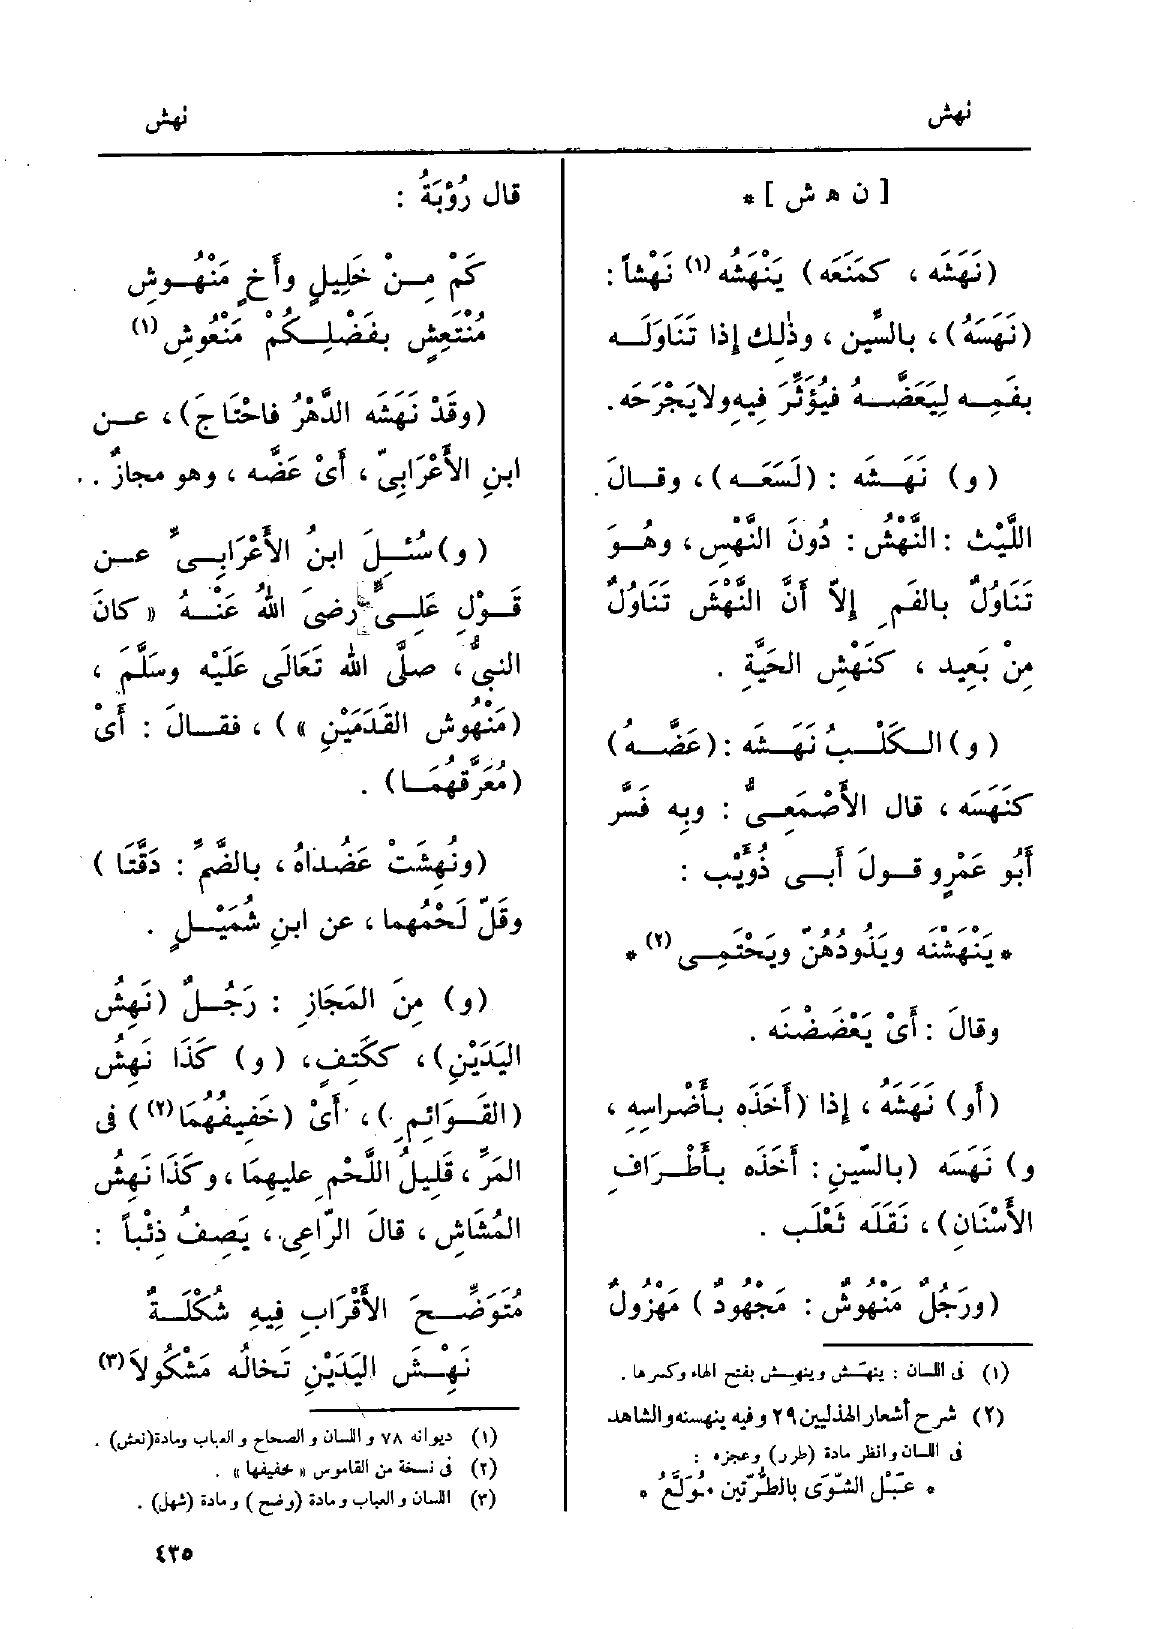 نهش
نهش
[ ن ه ش ] *
(نَهَشَه ، كمَنَعَه) يَنْهَشُه (١) نَهْشاً :
(نَهَسَهُ) ، بالسِّين ، وذٰلِك إِذا تَنَاوَلَــه
بفَمِــه لِيَعَضَّــهُ فيُؤَثِّرَ فِيهِ ولا يَجْرَحَه .
(و) نَهَــشَه : (لَسَعَــه) ، وقــالَ
اللَّيْث : النَّهْشُ : دُونَ النَّهْسِ ، وهُــوَ
تَنَاوُلٌ بالفَمِ إِلاّ أَنَّ النَّهْشَ تَنَاوُلٌ
مِنْ بَعِيد ، كنَهْشِ الحَيَّةِ .
(و) الــكَلْــبُ نَهَــشَه : (عَضَّــه)
كنَهَسَه ، قال الأَصْمَعِــىُّ : وبِه فَسَّر
أَبُو عَمْرٍو قــولَ أَبــى ذُؤَيْب :
* يَنْهَشْنَه ويَذُودُهُنّ ويَحْتَمِــى (٢) *
وقالَ : أَىْ يَعْضَضْنَه .
(أَو) نَهَشَهُ ، إِذا (أَخَذَه بأَضْراسِهِ ،
و) نَهَسَه (بالسِّينِ : أَخَذَه بأَطْــرَافِ
الأَسْنَانِ) ، نَقَلَه ثَعْلَب .
(ورَجُلٌ مَنْهُوشٌ : مَجْهُودٌ) مَهْزُولٌ
(١) فى اللسان : ينهَش وينهِش بفتح الهاء وكسرها .
(٢) شرح أشعار الهذليين ٢٩ وفيه ينهسنه والشاهد
فى اللسان وانظر مادة (طرر) وعجزه :
* عَبْلُ الشَّوَى بالطُّرَّتَيْن مُوَلَّعُ *
قال رُؤْبَةُ :
كَمْ مِــنْ خَلِيلٍ وأَخٍ مَنْهُــوشِ
مُنْتَعِشٍ بفَضْلِــكُمْ مَنْعُوشِ (١)
(وقَدْ نَهَشَه الدَّهْرُ فاحْتَاجَ) ، عــن
ابنِ الأَعْرَابِىّ ، أَىْ عَضَّه ، وهو مجازٌ .
(و) سُئِــلَ ابنُ الأَعْرَابِــىِّ عــن
قَــوْلِ عَلِــىٍّ رضىَ اللهُ عَنْــهُ « كانَ
النبىُّ ، صلَّى الله تَعَالَى عَلَيْه وسَلَّمَ ،
(مَنْهُوش القَدَمَيْنِ ») ، فقــالَ : أَىْ
(مُعَرَّقَهُمَــا) .
(ونُهِشَتْ عَضُداهُ ، بالضَّمِّ : دَقَّتَا )
وقَلَّ لَحْمُهما ، عن ابنِ شُمَيْــلٍ .
(و) مِنَ المَجَازِ : رَجُــلٌ (نَهِشُ
اليَدَيْنِ) ، ككَتِفٍ ، (و) كَذَا نَهِشُ
(القَــوَائِمِ) ، أَىْ (خَفِيفُهُمَا (٢)) فى
المَرِّ ، قَلِيلُ اللَّحْمِ عليهِمَا ، وكَذَا نَهِشُ
المُشَاشِ ، قالَ الرّاعِى ، يَصِفُ ذِئْباً :
مُتَوَضِّــحَ الأَقْرَابِ فِيهِ شُكْلَــةٌ
نَهِــشَ اليَدَيْنِ تَخالُه مَشْكُولاَ (٣)
(١) ديوانه ٧٨ واللسان والصحاح والعباب ومادة (نعش) .
(٢) فى نسخة من القاموس « خفيفها » .
(٣) اللسان والعباب ومادة (وضح) ومادة (شهل) .
٤٣٥